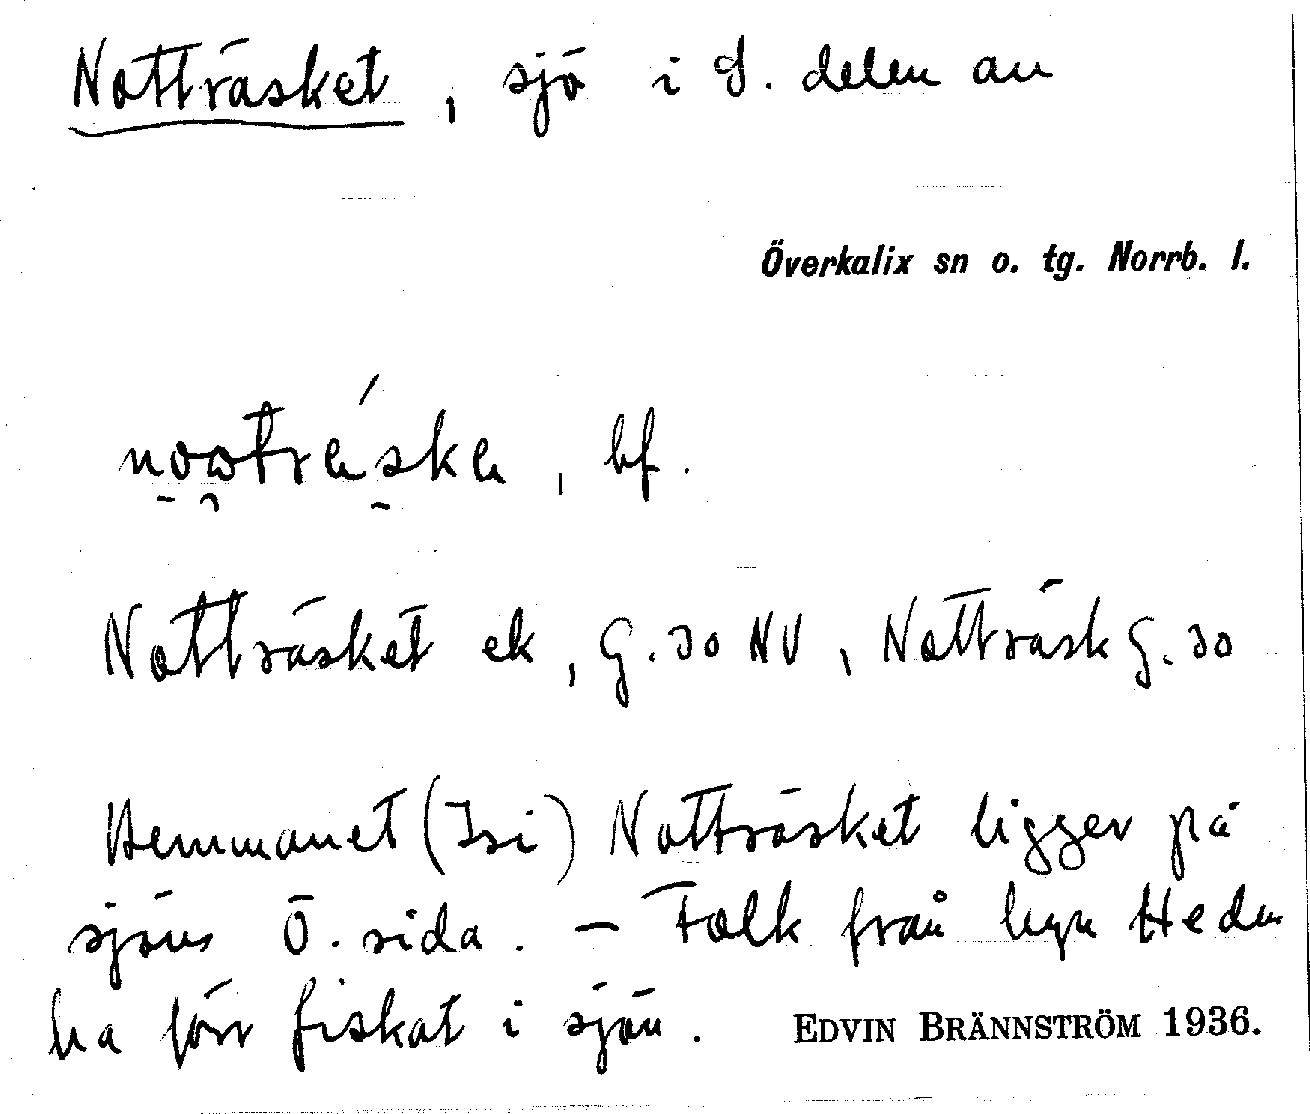 Notträsket, sjö i S. delen av
Överkalix sn o. tg. Norrb. l.
bf.
Notträsket ek, G. 30 NV, Notträsk G. 30
Hemmanet (Isi) Notträsket ligger på
sjöns Ö. sida. – Folk från byn Heden
ha förr fiskat i sjön. EDVIN BRÄNNSTRÖM 1936.